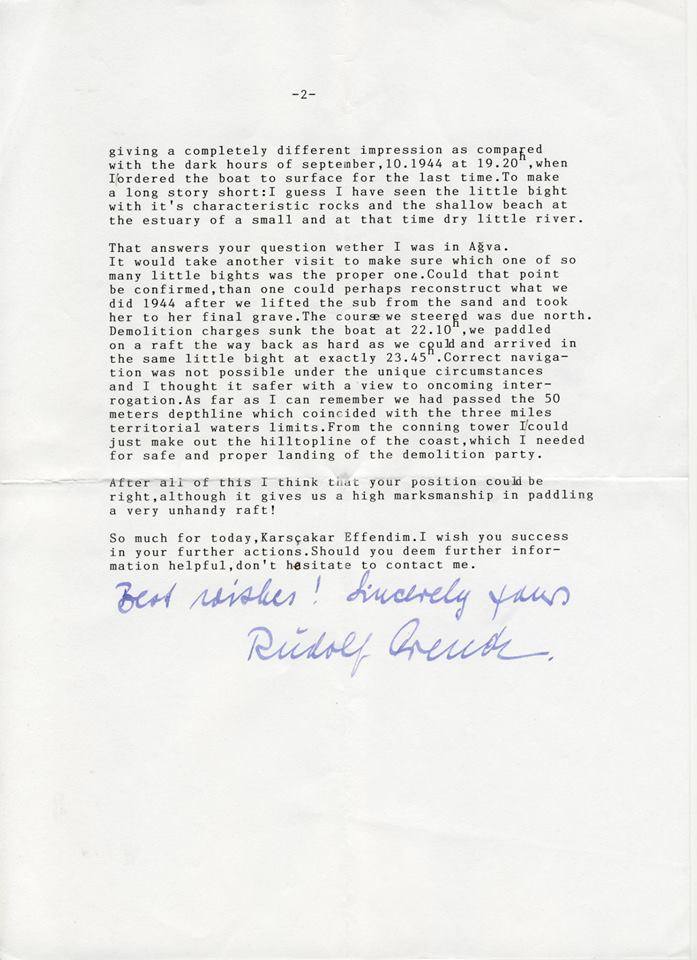 -2-
giving a completely different impression as compared
with the dark hours of september,10.1944 at 19.20h,when
I ordered the boat to surface for the last time.To make
a long story short:I guess I have seen the little bight
with it's characteristic rocks and the shallow beach at
the estuary of a small and at that time dry little river.
That answers your question wether I was in Ağva.
It would take another visit to make sure which one of so
many little bights was the proper one.Could that point
be confirmed,than one could perhaps reconstruct what we
did 1944 after we lifted the sub from the sand and took
her to her final grave.The course we steered was due north.
Demolition charges sunk the boat at 22.10h,we paddled
on a raft the way back as hard as we could and arrived in
the same little bight at exactly 23.45h.Correct naviga-
tion was not possible under the unique circumstances
and I thought it safer with a view to oncoming inter-
rogation.As far as I can remember we had passed the 50
meters depthline which coincided with the three miles
territorial waters limits.From the conning tower I could
just make out the hilltopline of the coast,which I needed
for safe and proper landing of the demolition party.
After all of this I think that your position could be
right,although it gives us a high marksmanship in paddling
a very unhandy raft!
So much for today,Karsçakar Effendim.I wish you success
in your further actions.Should you deem further infor-
mation helpful,don't hesitate to contact me.
Best wishes! Sincerely yours
Rudolf Arendt.